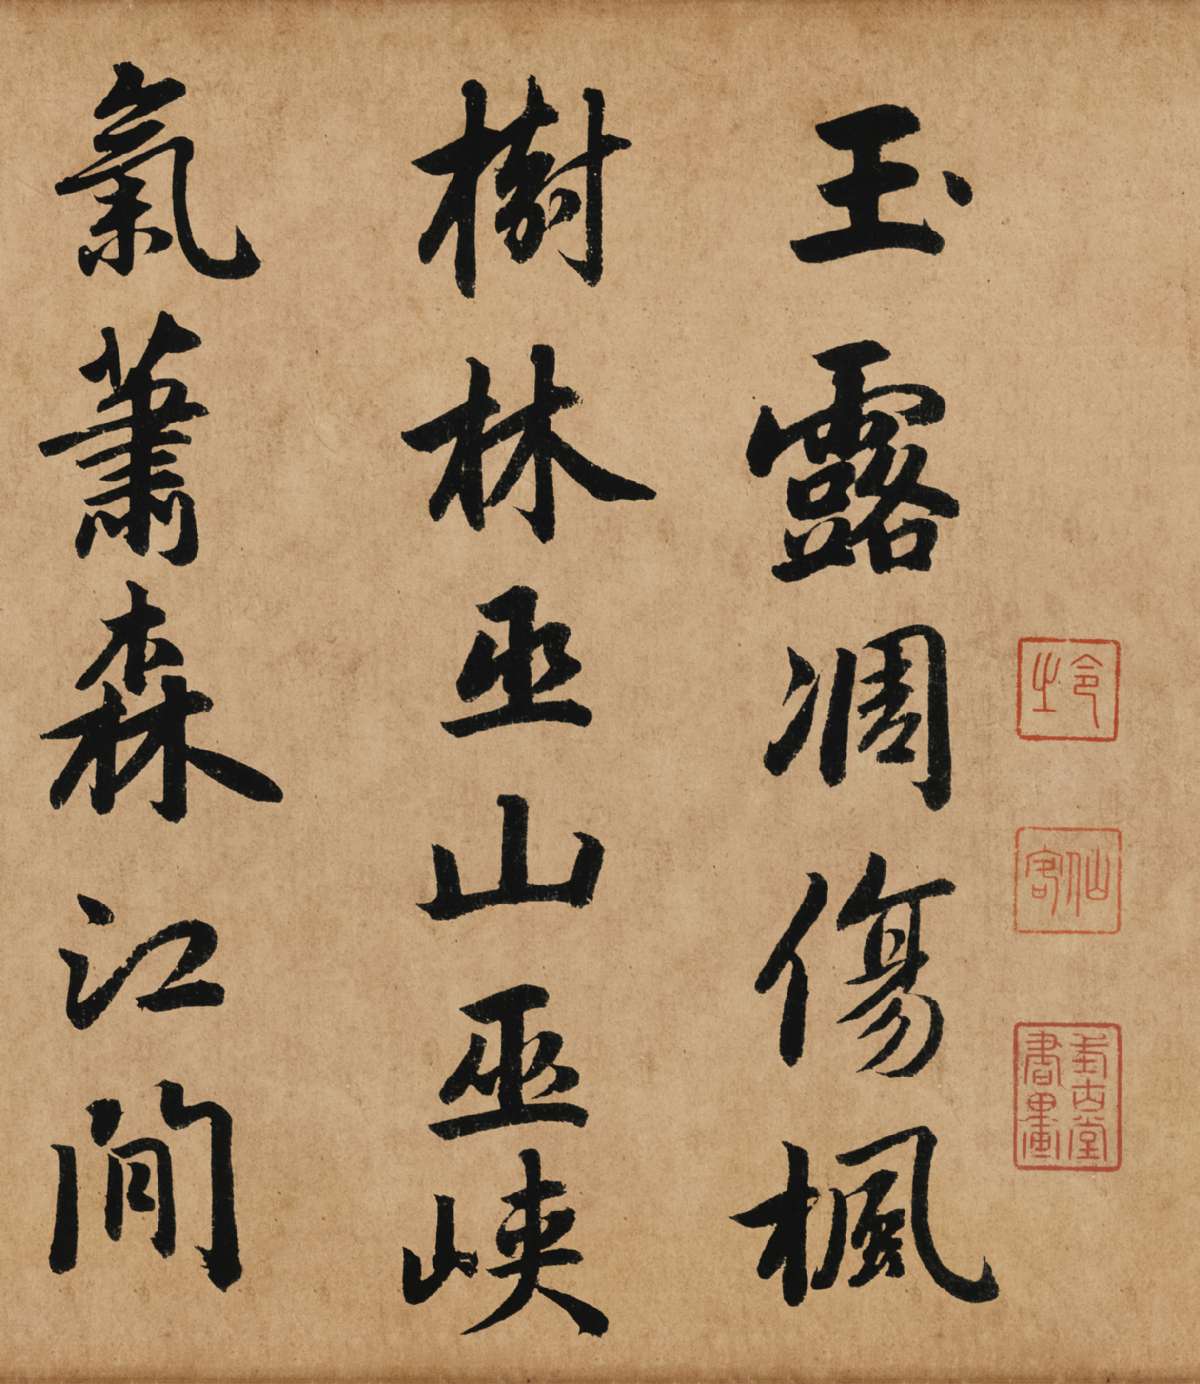 玉露凋傷楓
樹林巫山巫峽
氣蕭森江間
仙客